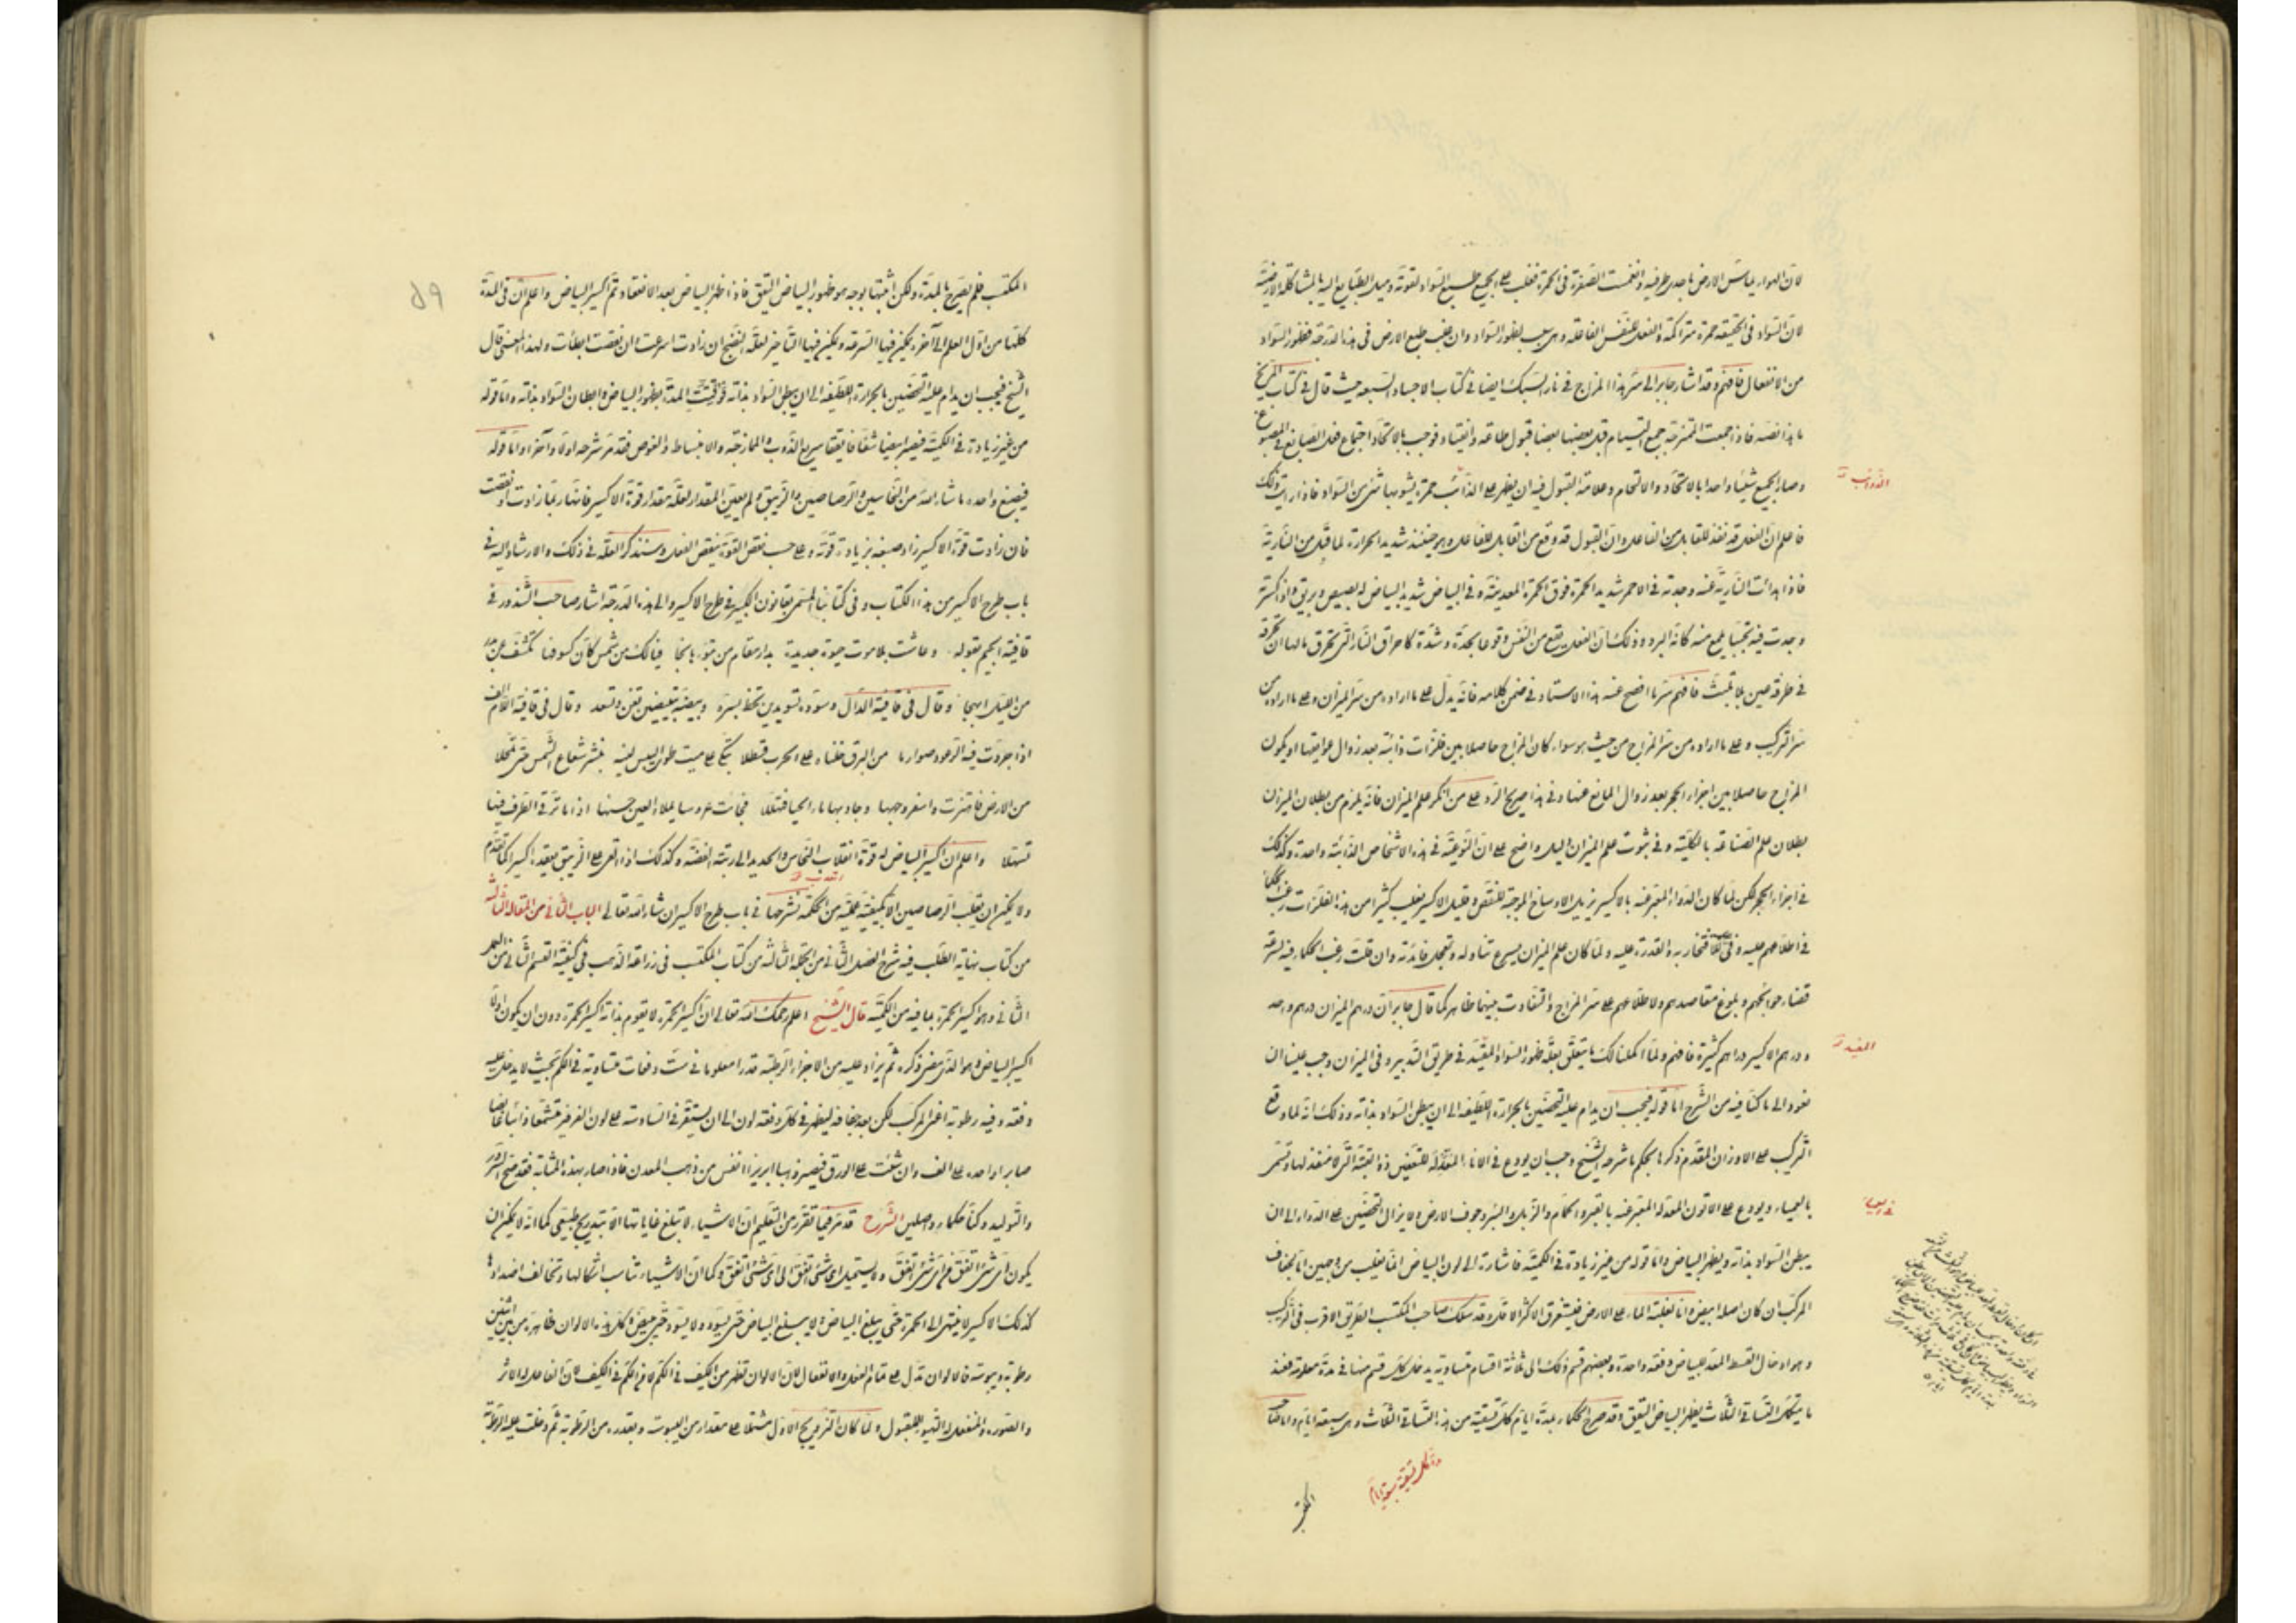 لان الهواء يماس الارض باحد طرفيه وانغمست الصفرة فى الحمرة فغلب على الجميع طبع السواد لقوته وميل الطبايع اليه بالمشاكلة الارضية
لان السواد فى الحقيقة حمرة متراكمة والفعل للنفس الفاعلة وهى سبب لظهور السواد وان غلب طبع الارض فى هذه الدرجة فظهور السواد
من الانفعال فافهم وقد اشار جابر الى سر هذا المزاج فى نار السبك ايضا فى كتاب الاجساد السبعة حيث قال فى كتاب المريخ
ما هذا نصه فاذا جمعت الممتزجة جميع اقبل بعضها بعضا قبول طاعة وانقياد فوجب بالاتحاد اجتماع فعل الصابغ فى المصبوغ
وصار الجميع شيئا واحدا بالاتحاد والالتحام وعلامة القبول فيه ان يظهر على الذائب حمرة يشوبها شئ من السواد فاذا رايت ذلك
فاعلم ان الفعل قد نفذ للقابل من الفاعل وان القبول قد وقع من القابل للفاعل وهو حينئذ شديد الحرارة لما قبل من النارية
فاذا هدات النارية عنه وجدته فى الاحمر شديد الحمرة فوق الحمرة المعدنية وفى البياض شديد البياض له بصيص وبريق واذا كسرته
وجدت فيه تحببا يلمع منه كانه البرد وذلك ان الفعل يقع من النفس وقوعا بحدة وشدة كاحراق النار التى تحرق ما لها ان تحرقه
فى طرفة عين بلا تلبث فافهم سر ما افصح عنه هذا الاستاد فى ضمن كلامه فانه يدل على ما اراده من سر الميزان وعلى ما اراده من
سر التركيب وعلى ما اراده من سر المزاج من حيث هو سواء كان المزاج حاصلا بين فلزات ذائبة بعد زوال عوايقها او يكون
المزاج حاصلا بين اجزاء الحجر بعد زوال الموانع عنها وفى هذا صريح الرد على من انكر علم الميزان فانه يلزم من بطلان الميزان
بطلان علم الصناعة بالكلية وفى ثبوت علم الميزان دليل واضح على ان النوعية فى هذه الاشخاص الذائبة واحدة وكذلك
فى اجزاء الحجر لكن لما كان الدواء المعبر عنه بالاكسير يزيل الاوساخ الموجبة للنقص وقليل الاكسير يغلب كثيرا من هذه الفلزات رغب الحكما
فى اطلاعهم عليه وفى الافتخار به والقدرة عليه ولما كان علم الميزان يسرع تناوله وتعجل فائدته وان قلت رغب الحكماء فيه لسرعة
قضاء حوائجهم وبلوغ مقاصدهم ولاطلاعهم على سر المزاج والتفاوت بينهما ظاهر كما قال جابر ان درهم الميزان درهم واحد
ودرهم الاكسير دراهم كثيرة فافهم ولما اكملنا لك ما يتعلق بعلة ظهور السواد المقيد فى طريق التدبير وفى الميزان وجب علينا ان
نعود الى ما كنا فيه من الشرح اما قوله فيجب ان يدام عليه التحضين بالحرارة اللطيفة الى ان يبطن السواد بذاته وذلك انه لما وقع
التركيب على الاوزان المتقدم ذكرها بحكم ما شرحه الشيخ وجب ان يودع فى الاناء المعتدلة للتعفين ذا القبة التى لا منفذ لها وتسمى
بالعمياء ويودع على الاتون المعتدلة المعبر عنه بالقبر والحمام والزبل والبئر وجوف الارض ولا يزال التحضين على الدواء الى ان
يبطن السواد بذاته ويظهر البياض واما قوله من غير زيادة فى الكمية فاشارة الى لون البياض انما يغلب من وجهين اما بجفاف
المركب ان كان اصله ابيض واما بغلبة الماء على الارض فيستغرق الاكثر الاقل وقد سلك صاحب المكتسب الطريق الاقرب فى التركيب
وهو ادخال القسط المعد للبياض دفعة واحدة وبعضهم قسم ذلك الى ثلاثة اقسام متساوية يدخل كل قسم منها فى مدة معلومة فعند
ما يتكمل التساقى الثلاث يظهر البياض اليقق وقد صرح الحكماء بمدة ايام كل تسقية من هذه التساقى الثلاث وهى سبعة ايام واما صاحب
المكتسب
الذوائب
المفيد
مدة كل تسقية سبعة ايام
٥٩
المكتسب فلم يصرح بالمدة ولكن اثبتها بوجه هو ظهور البياض اليقق فاذا ظهر البياض بعد الانعقاد تم اكسير البياض واعلم ان فى المدة
كلها من اول العمل الى آخره يمكن فيها السرعة ويمكن فيها التاخير لعلة النضج ان زادت اسرعت وان نقصت ابطات ولهذا المعنى قال
الشيخ فيجب ان يدام عليه التحضين بالحرارة اللطيفة الى ان يبطن السواد بذاته فوقيت المدة بظهور البياض وابطان السواد بذاته واما قوله
من غير زيادة فى الكمية فيصير ابيضا شفافا يققا سريع الذوب والممازجة والانبساط والغوص فقد مر شرحه اولا وآخرا واما قوله
فيصبغ واحده ما شاء الله من النحاسين والرصاصين والزيبق ولم يعين المقدار لعلة مقدار قوة الاكسير فانها ربما زادت او نقصت
فان زادت قوة الاكسير زاد صبغه بزيادة قوته وعلى حسب نقص القوة ينقص الفعل وسنذكر العلة فى ذلك والارشاد اليه فى
باب طرح الاكسير من هذا الكتاب وفى كتابنا المسمى بقانون الكبير فى طرح الاكسير والى هذه الدرجة اشار صاحب الشذور فى
قافية الجيم بقوله وعاشت بلا موت حيوة جديدة بدار مقام من تبوءها نجا فيا لك من شمس كان كسوفها تكشف عن بدر
من الليل ابهجا وقال فى قافية الدال وسوده تسويدين تحظ بسره وبيضه تبييضين تغن وتسعد وقال فى قافية اللام الف
اذا جردت فيه الرعود صوارما من البرق خلناه على الحرب قسطلا بكى على ميت طواه اليبس لينشر شعاع الشمس حتى تجللا
من الارض فاهتزت واسفر وجهها وجاد بها ماء الحيا فتهللا فجاءت عروسا يملا العين حسنها اذا ما ترقى الطرف فيها
تسهلا واعلم ان اكسير البياض له قوة انقلاب النحاس والحديد الى رتبة الفضة وكذلك اذا القى على الزيبق يعقده اكسيرا كما تقدم
ولا يمكن ان يقلب الرصاصين الا بكيفية عملية من الحكمة نشرحها فى باب طرح الاكسير ان شاء الله تعالى الباب الثانى من المقالة الثالثة
من كتاب نهاية الطلب فيه شرح الفصل الثانى من الجملة الثالثة من كتاب المكتسب فى زراعة الذهب فى كيفية القسم الثانى من العمل
الثانى وهو اكسير الحمرة بما فيه من الكمية قال الشيخ اعلم رحمك الله تعالى ان اكسير الحمرة لا يقوم بذاته اكسير الحمرة دون ان يكون اولا
اكسير البياض وهو الذى مضى ذكره ثم يزاد عليه من الاجزاء الرطبة قدرا معلوما فى ست دفعات متساوية فى الكم بحيث لا يدخل عليه
دفعة وفيه رطوبة اعنى المركب لكن بعد جفافه ليظهر فى كل دفعة لون الى ان يستقر فى السادسة على لون الفرفير مشمعا ذائبا غائصا
صابرا واحده على الف وان شئت على الورق فيصير ذهبا ابريزا انفس من ذهب المعدن فاذا صار بهذه المثابة فقد صح التزويج
والتوليد وكنا حكماء واصلين الشرح قد مر فيما تقرر من التعليم ان الاشياء لا تبلغ غاياتها الا بتدريج طبيعى كما انه لا يمكن ان
يكون اى شئ اتفق فى اى شئ اتفق ولا يستحيل اى شئ اتفق الى اى شئ اتفق وكما ان الاشياء تناسب اشكالها وتخالف اضدادها
كذلك الاكسير لا ينتهى الى الحمرة حتى يبلغ البياض ولا يبلغ البياض حتى يسود ولا يسود حتى يبيض وكل هذه الالوان ظاهرة من بين اثنين
رطوبة ويبوسة فالالوان تدل على تمام الفعل والانفعال لان الالوان تظهر من الكيف فى الكم لا من الكم فى الكيف لان الفاعل له الاثر
والصورة والمنفعل له التهيؤ للقبول ولما كان التزويج الاول مشتملا على مقدار من اليبوسة وبقدره من الرطوبة ثم دخلت عليه الرطوبة